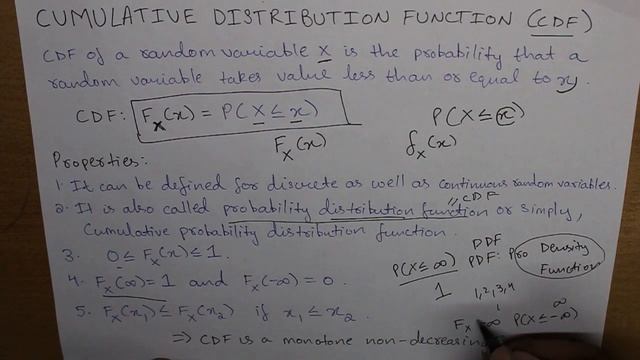 CUMULATIVE DISTRIBUTION FUNCTION (CDF)
CDF of a random variable X is the probability that a
random variable takes value less than or equal to x.
CDF: F_X(x) = P(X ≤ x)
P(X ≤ x)
F_X(x)
f_X(x)
Properties:
1. It can be defined for discrete as well as continuous random variables.
// CDF
2. It is also called probability distribution function or simply,
Cumulative probability distribution function.
3. 0 ≤ F_X(x) ≤ 1.
PDF
P(X ≤ ∞)
PDF: Pro Density
Function
4. F_X(∞) = 1 and F_X(-∞) = 0.
1
1, 2, 3, 4
5. F_X(x₁) ≤ F_X(x₂) if x₁ ≤ x₂.
∞
F_X -∞
P(X ≤ -∞)
⇒ CDF is a monotone non-decreasing